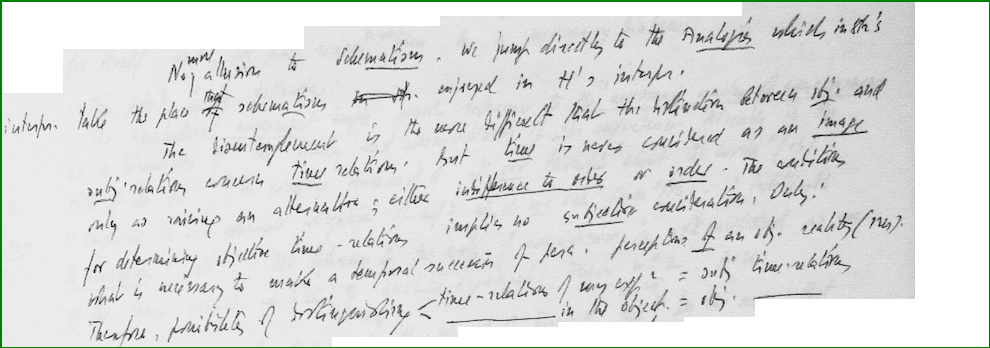 No more allusion to Schematism. We jump directly to the Analogies which in Str's
interpr. take the place that schematism enjoyed in H's interpr.
The disentanglement is the more difficult that the distinction between obj. and
subj. relations concerns time relations. But time is never considered as an image
only as raising an alternative; either indifference to order or order. The conditions
for determining objective time-relations implies no subjective consideration. Only:
what is necessary to make a temporal succession of perceptions of an obj. reality
Therefore, possibility of distinguishing time-relations of my = subj time-relations
in the object = obj.